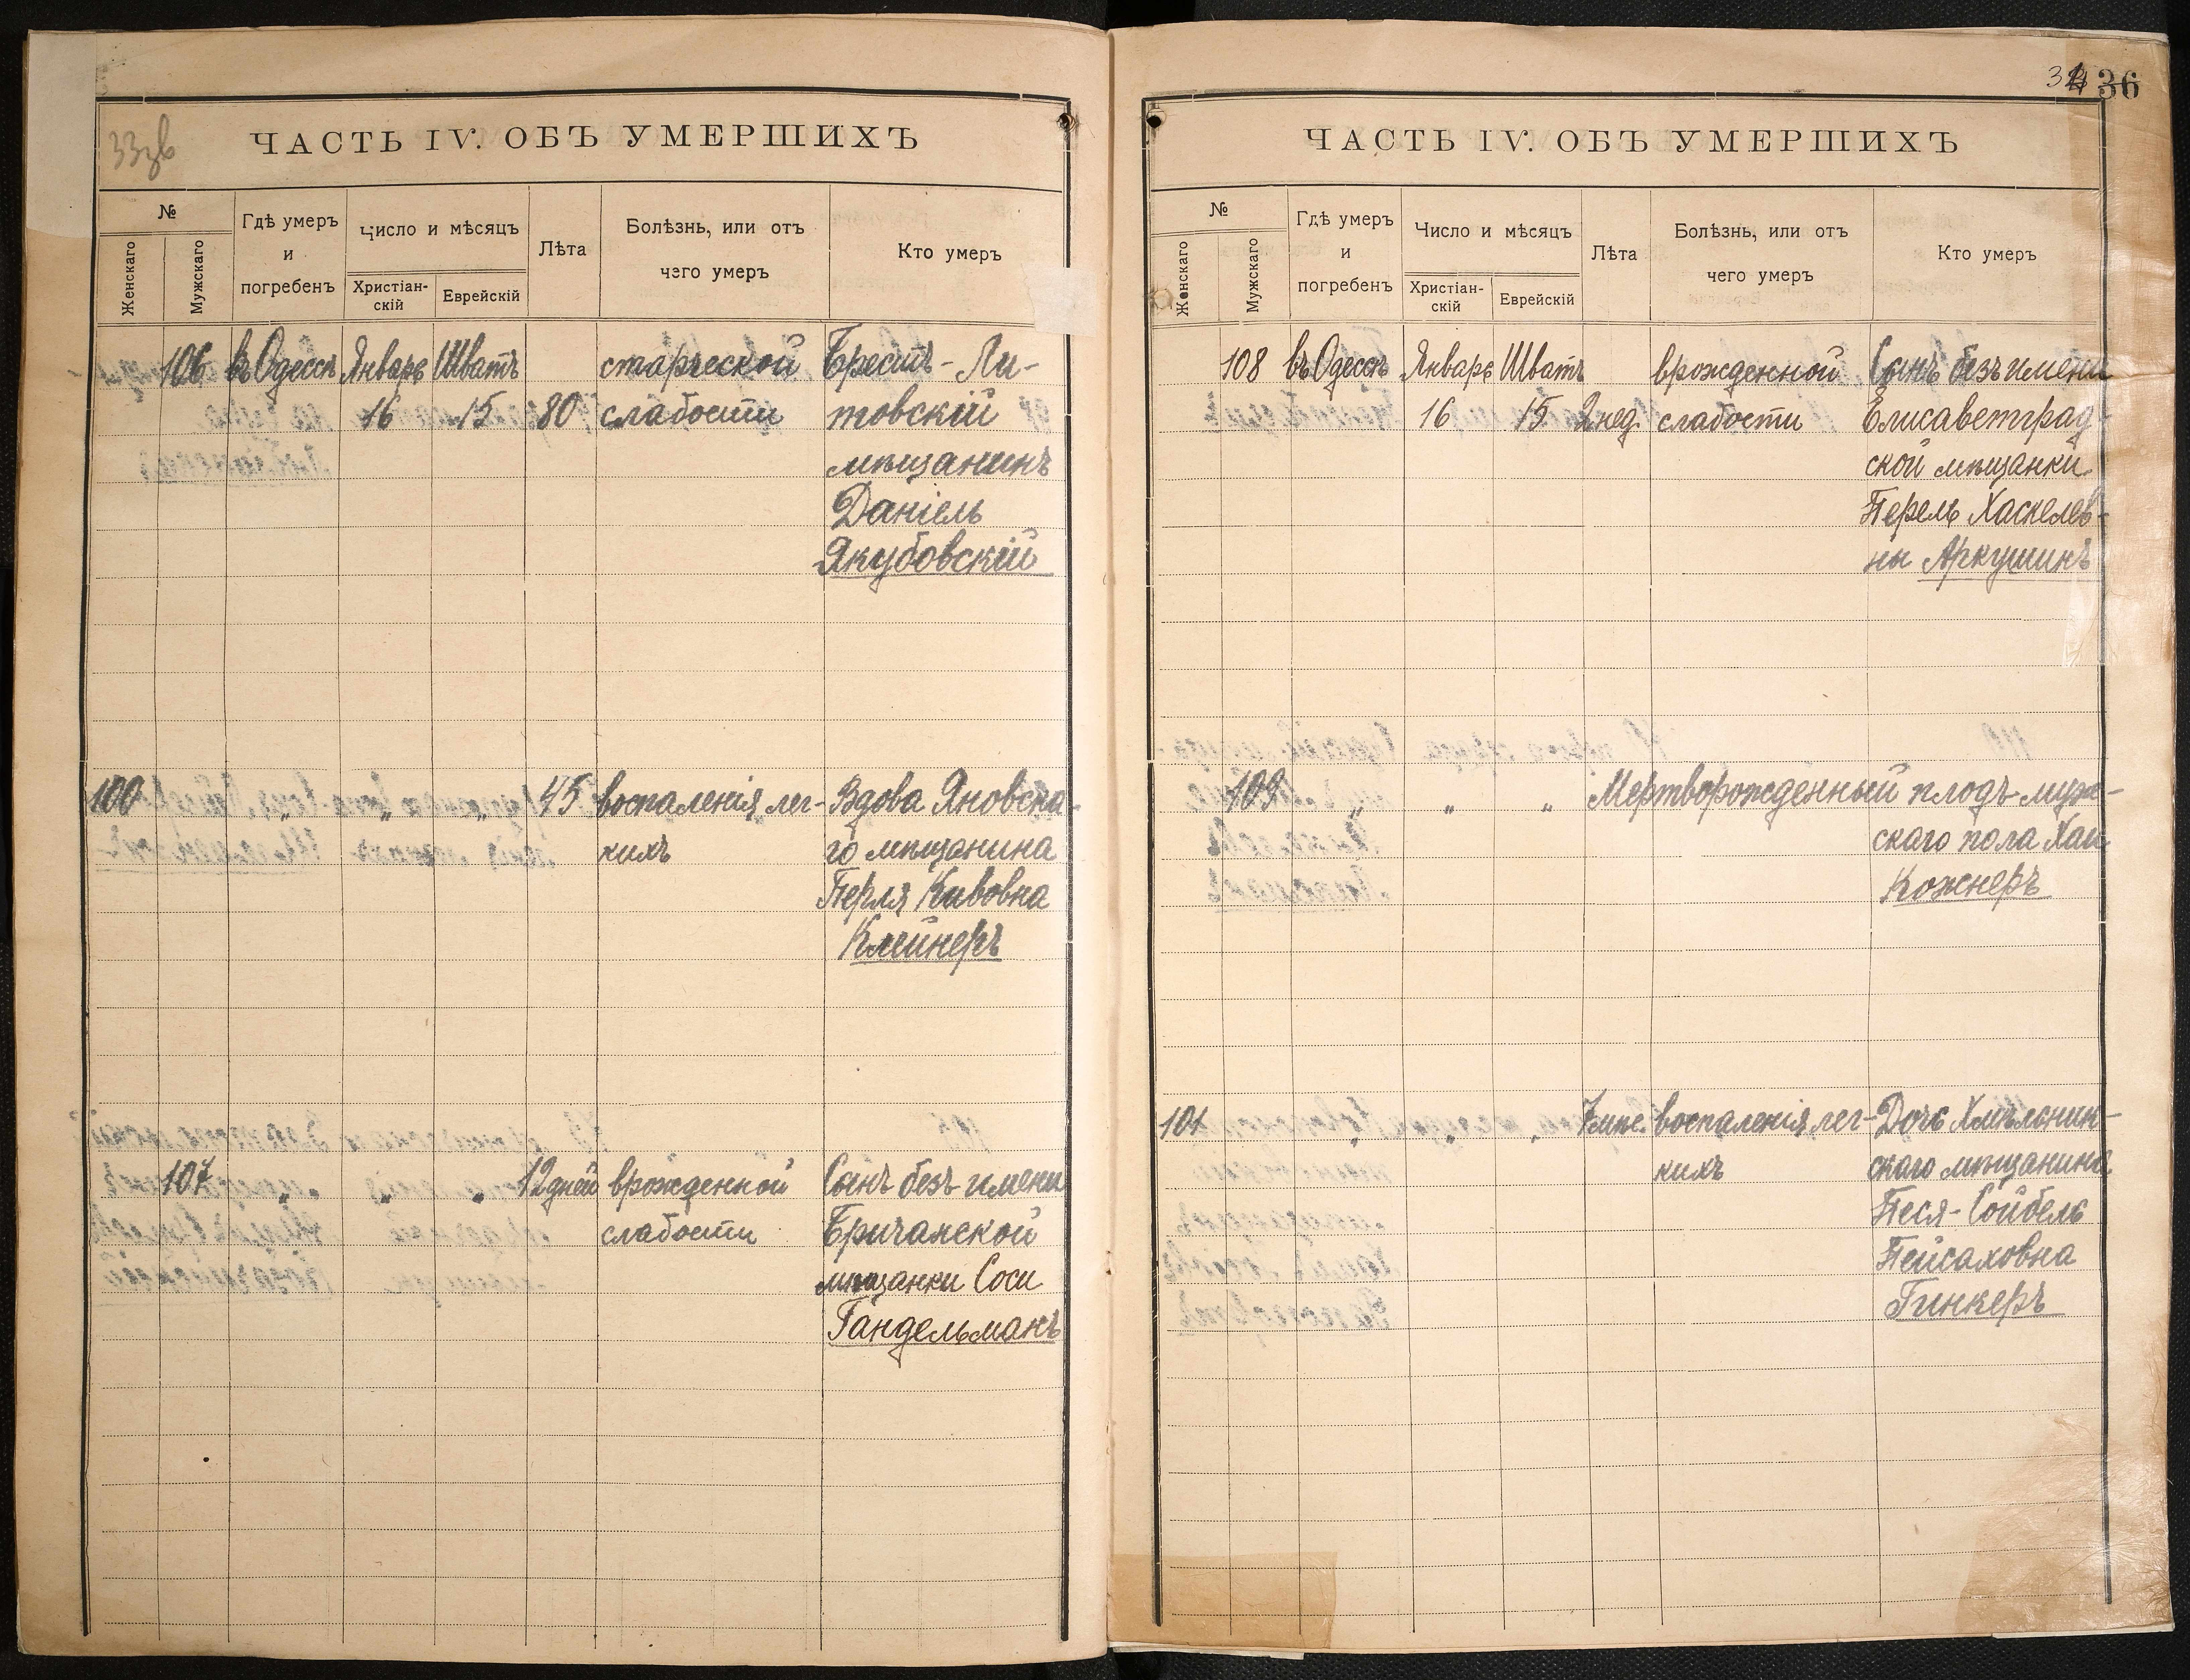 33зв
ЧАСТЬ IV. ОБЪ УМЕРШИХЪ
№
Женскаго
Мужскаго
Гдѣ умеръ
и
погребенъ
Число и мѣсяцъ
Христіан-
скій
Еврейскій
Лѣта
Болѣзнь, или отъ
чего умеръ
Кто умеръ
106 въ Одессѣ Январь Шватъ старческой Брестъ-Ли-
16 15 80 слабости товскій
мѣщанинъ
Даніель
Якубовскій
100 " " " 45 воспаленія лег- Вдова Яновска-
кихъ го мѣщанина
Перля Кивовна
Клейнеръ
107 " " " 12 дней врожденной Сынъ безъ имени
слабости Бричанской
мѣщанки Соси
Гандельманъ
36
ЧАСТЬ IV. ОБЪ УМЕРШИХЪ
№
Женскаго
Мужскаго
Гдѣ умеръ
и
погребенъ
Число и мѣсяцъ
Христіан-
скій
Еврейскій
Лѣта
Болѣзнь, или отъ
чего умеръ
Кто умеръ
108 въ Одессѣ Январь Шватъ врожденной Сынъ безъ имени
16 15 2 нед. слабости Елисаветград-
ской мѣщанки
Перель Хаскелев-
ны Аркушинъ
109 " " " Мертворожденный плодъ муж-
скаго пола Хаи
Кожнеръ
101 " " " воспаленія лег- Дочь Хмѣльник-
кихъ скаго мѣщанина
Песя-Сойбель
Пейсаховна
Гинкеръ